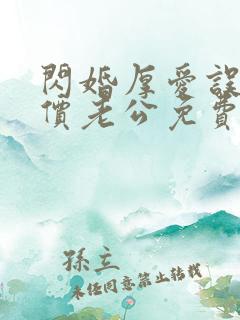 閃婚厚愛誤
價老公免費
孫立
未經同意禁止轉載